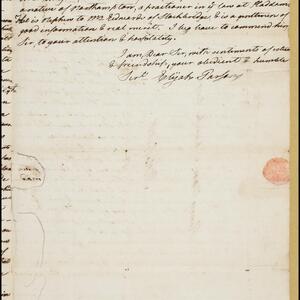 a native of Northampton, a practitioner in ye law at Haddam
He is nephew to Mr Edwards of Stockbridge & is a gentleman of
good information & real merit. I beg leave to commend him
Sir, to your attention & hospitality.
I am, Dear Sir, with sentiments of esteem
& friendship, your obedient & humble
Servt. Elijah Parsons